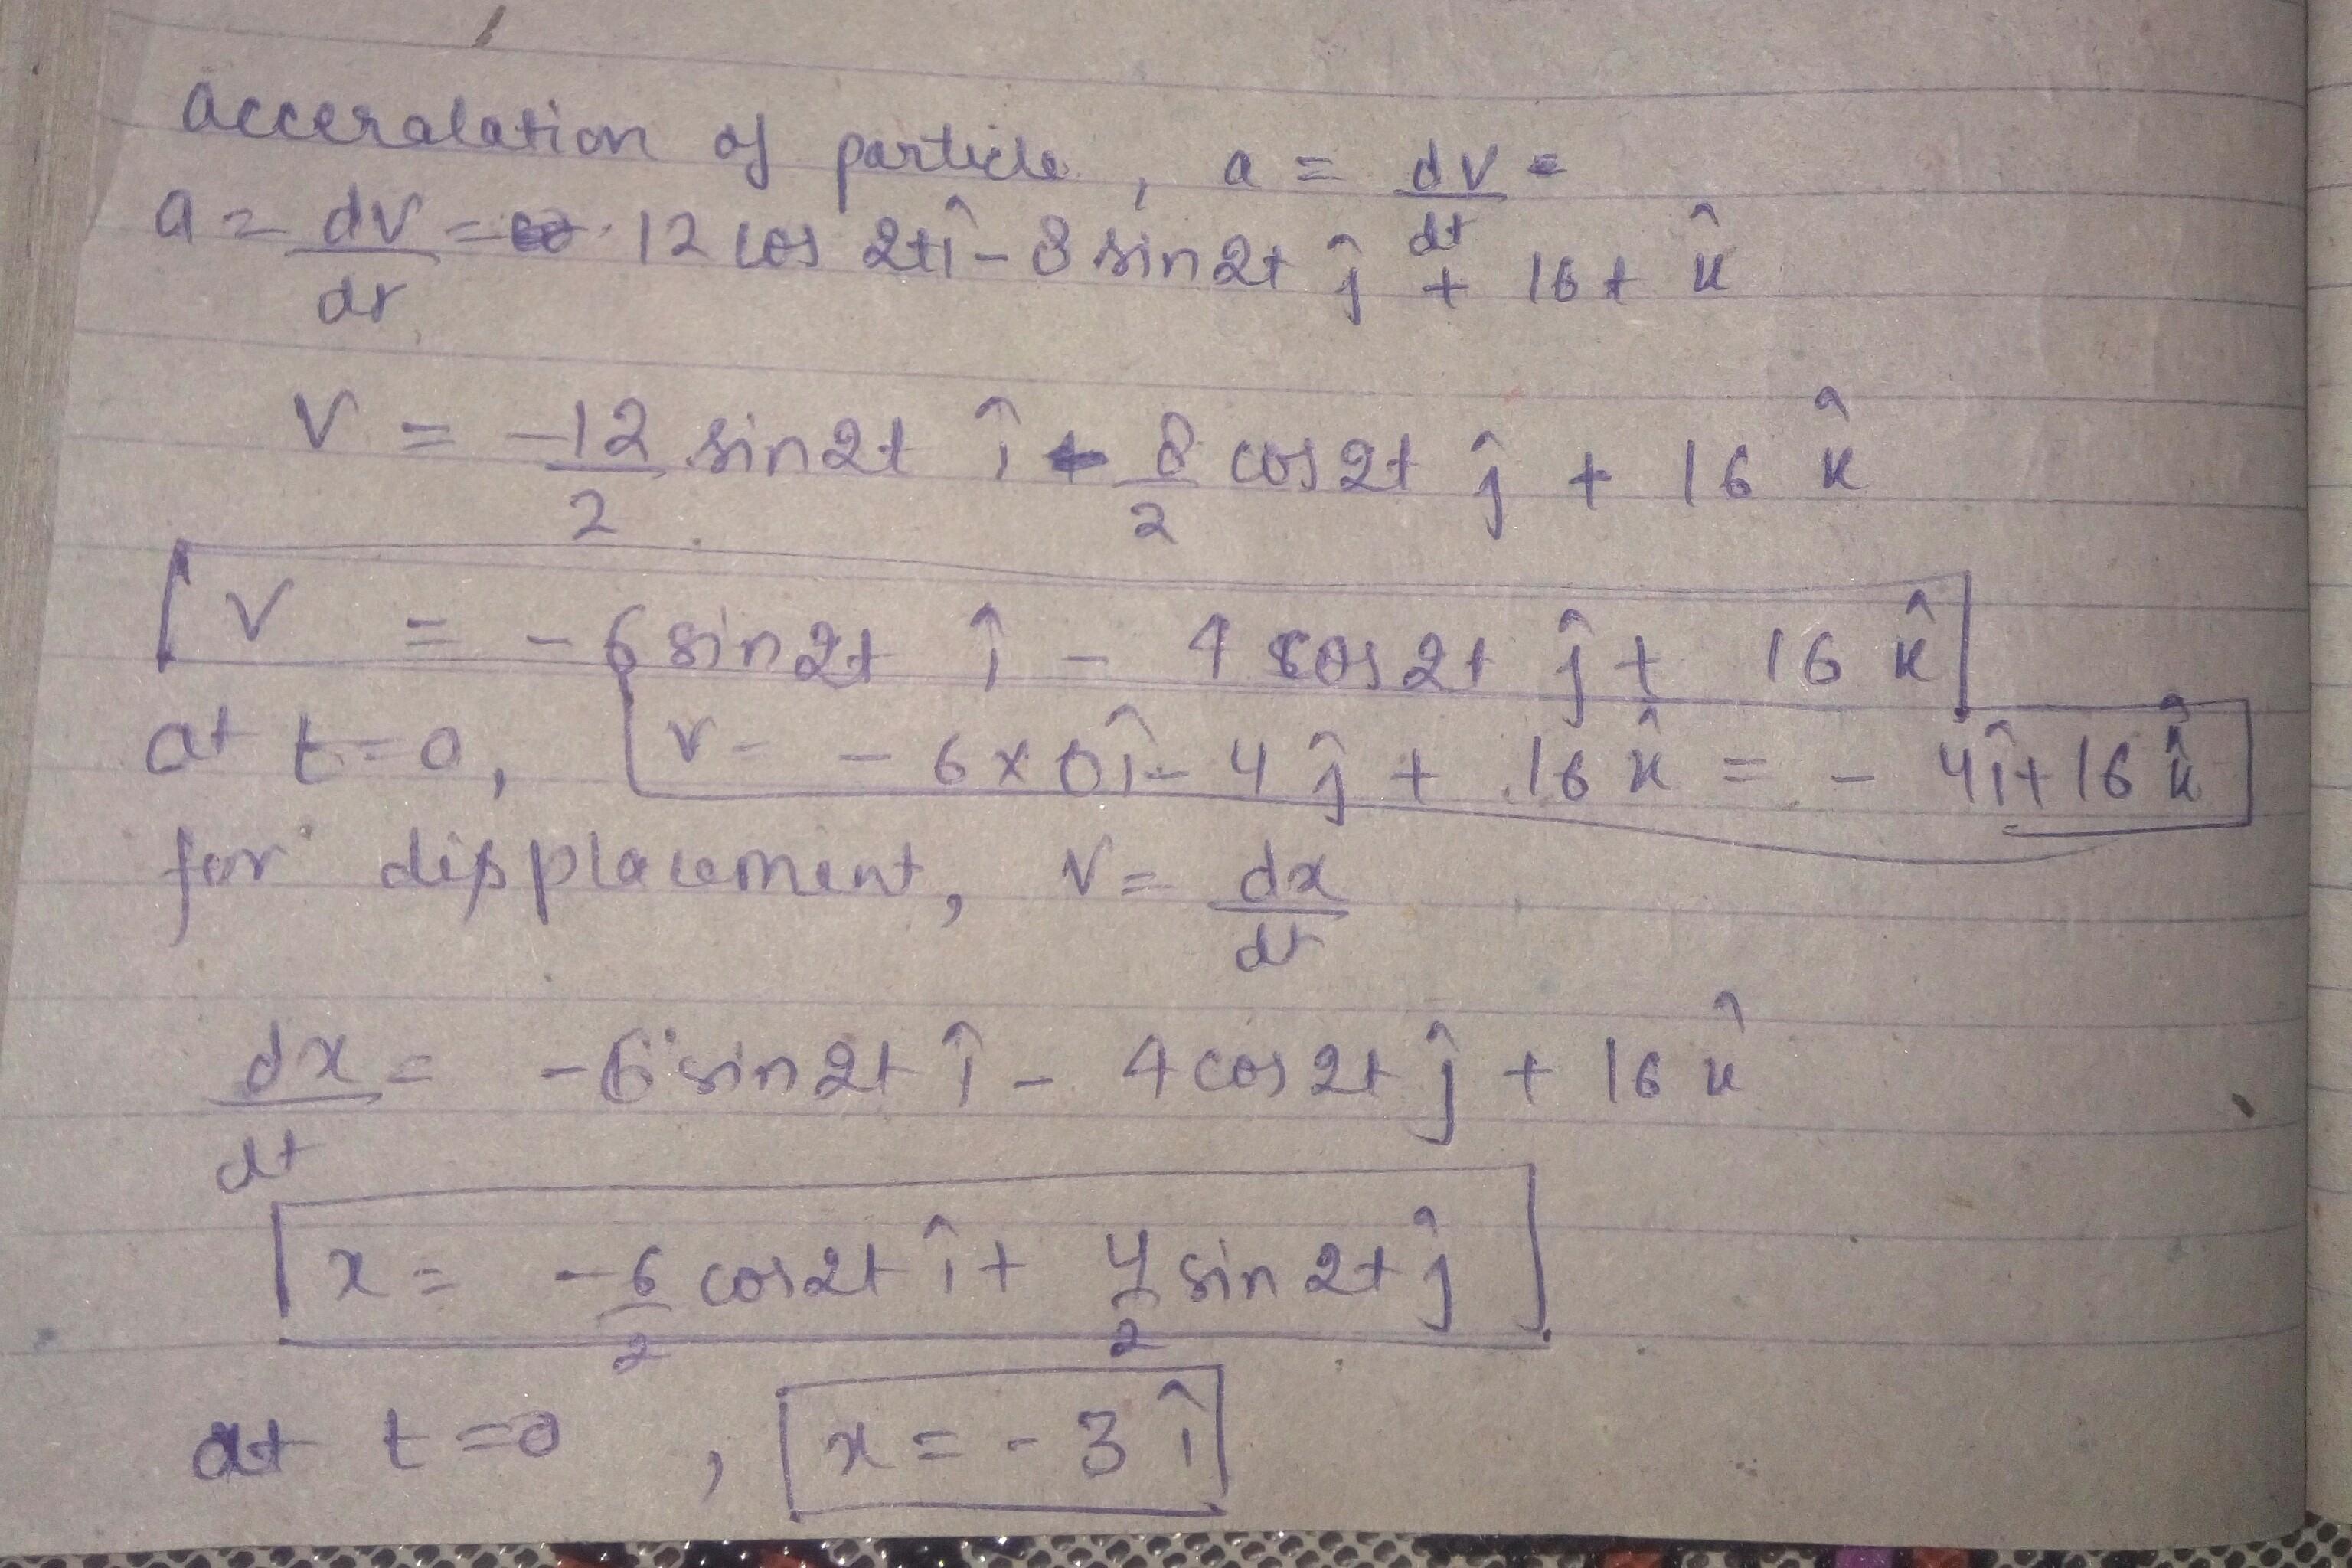 acceralation of particle, a = dv/dt =
a = dv/dt = 12 cos 2t î - 8 sin 2t ĵ + 16t k̂
v = -12/2 sin 2t î - 8/2 cos 2t ĵ + 16 k̂
v = -6 sin 2t î - 4 cos 2t ĵ + 16 k̂
at t=0, v = -6×0î - 4ĵ + 16 k̂ = - 4î + 16 k̂
for displacement, v = dx/dt
dx/dt = -6 sin 2t î - 4 cos 2t ĵ + 16 k̂
x = -6/2 cos 2t î + 4/2 sin 2t ĵ
at t=0, x = -3 î